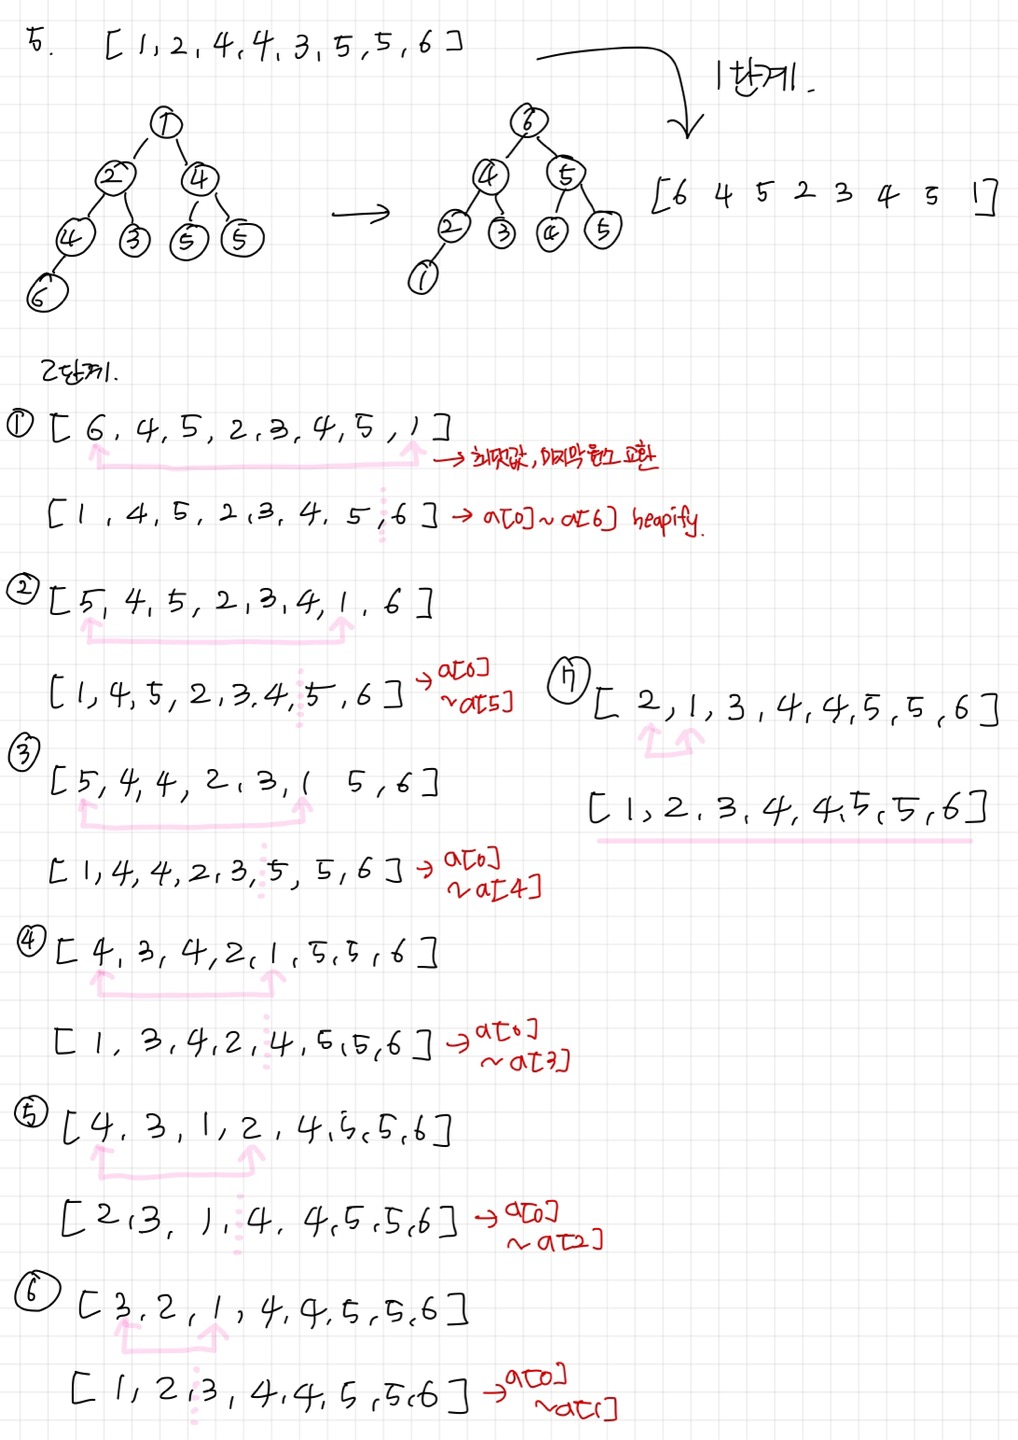 5. [1, 2, 4, 4, 3, 5, 5, 6]
1단계.
1
2 4
4 3 5 5
6
6
4 5
2 3 4 5
1
[6 4 5 2 3 4 5 1]
2단계.
① [6, 4, 5, 2, 3, 4, 5, 1]
→ 최댓값, 마지막 원소 교환
[1, 4, 5, 2, 3, 4, 5, 6] → a[0] ~ a[6] heapify.
② [5, 4, 5, 2, 3, 4, 1, 6]
[1, 4, 5, 2, 3, 4, 5, 6] → a[0]
~a[5]
③ [5, 4, 4, 2, 3, 1 5, 6]
[1, 4, 4, 2, 3, 5, 5, 6] → a[0]
~a[4]
④ [4, 3, 4, 2, 1, 5, 5, 6]
[1, 3, 4, 2, 4, 5, 5, 6] → a[0]
~a[3]
⑤ [4, 3, 1, 2, 4, 5, 5, 6]
[2, 3, 1, 4, 4, 5, 5, 6] → a[0]
~a[2]
⑥ [3, 2, 1, 4, 4, 5, 5, 6]
[1, 2, 3, 4, 4, 5, 5, 6] → a[0]
~a[1]
⑦ [2, 1, 3, 4, 4, 5, 5, 6]
[1, 2, 3, 4, 4, 5, 5, 6]